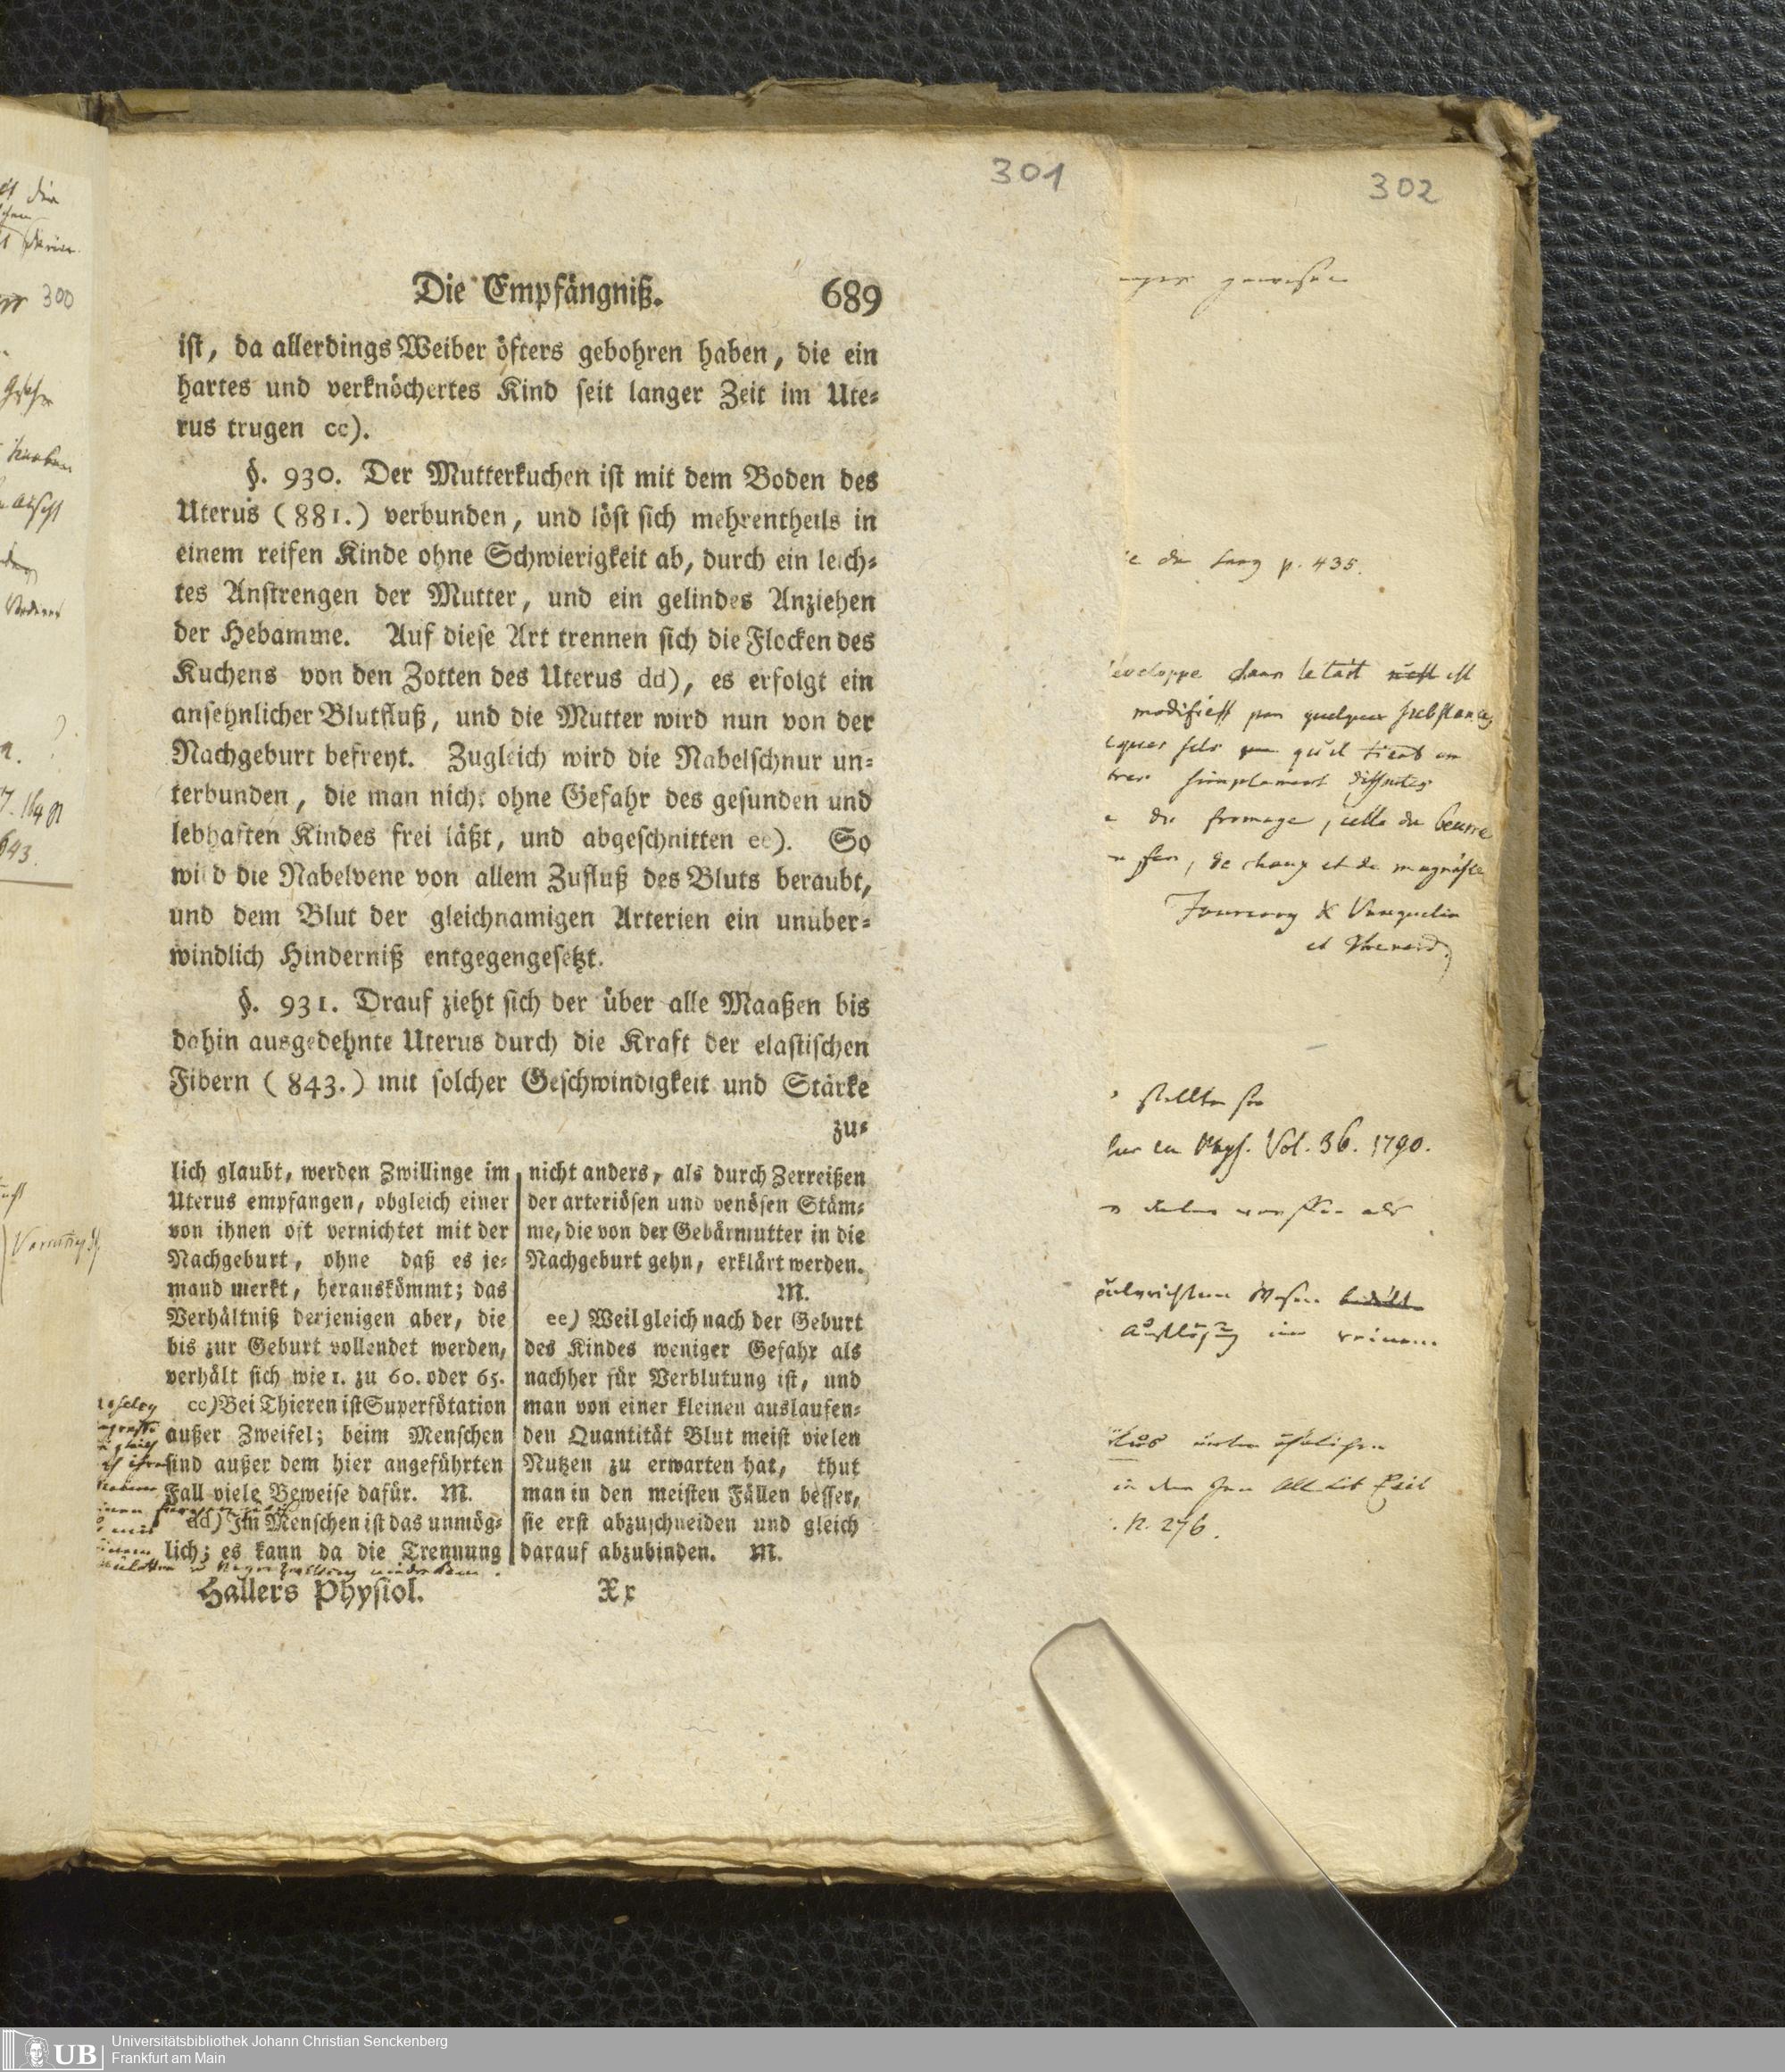 301
302
300
Die Empfängniß. 689
iſt, da allerdings Weiber öfters gebohren haben, die ein
hartes und verknöchertes Kind ſeit langer Zeit im Ute⸗
rus trugen cc).
§. 930. Der Mutterkuchen iſt mit dem Boden des
Uterus (881.) verbunden, und löſt ſich mehrentheils in
einem reifen Kinde ohne Schwierigkeit ab, durch ein leich⸗
tes Anſtrengen der Mutter, und ein gelindes Anziehen
der Hebamme. Auf dieſe Art trennen ſich die Flocken des
Kuchens von den Zotten des Uterus dd), es erfolgt ein
anſehnlicher Blutfluß, und die Mutter wird nun von der
Nachgeburt befreyt. Zugleich wird die Nabelſchnur un⸗
terbunden, die man nicht ohne Gefahr des geſunden und
lebhaften Kindes frei läßt, und abgeſchnitten ee). So
wird die Nabelvene von allem Zufluß des Bluts beraubt,
und dem Blut der gleichnamigen Arterien ein unüber⸗
windlich Hinderniß entgegengeſetzt.
§. 931. Drauf zieht ſich der über alle Maaßen bis
dahin ausgedehnte Uterus durch die Kraft der elaſtiſchen
Fibern (843.) mit ſolcher Geſchwindigkeit und Stärke
zu⸗
lich glaubt, werden Zwillinge im
Uterus empfangen, obgleich einer
von ihnen oft vernichtet mit der
Nachgeburt, ohne daß es je⸗
mand merkt, herauskömmt; das
Verhältniß derjenigen aber, die
bis zur Geburt vollendet werden,
verhält ſich wie 1. zu 60. oder 65.
cc) Bei Thieren iſt Superfötation
außer Zweifel; beim Menſchen
ſind außer dem hier angeführten
Fall viele Beweiſe dafür. M.
dd) Im Menſchen iſt das unmög⸗
lich; es kann da die Trennung
nicht anders, als durch Zerreißen
der arteriöſen und venöſen Stäm⸗
me, die von der Gebärmutter in die
Nachgeburt gehn, erklärt werden.
M.
ee) Weil gleich nach der Geburt
des Kindes weniger Gefahr als
nachher für Verblutung iſt, und
man von einer kleinen auslaufen⸗
den Quantität Blut meiſt vielen
Nutzen zu erwarten hat, thut
man in den meiſten Fällen beſſer,
ſie erſt abzuſchneiden und gleich
darauf abzubinden. M.
Hallers Phyſiol. Xx
p. 435.
dans le lait est
par quelques substances
qu'il tient en
simplement dissoutes
du fromage, celle du beurre
fer, de chaux et de magnésie
Fourcroy & Vauquelin
et Thenard
Phys. Vol. 36. 1790.
Auflösung
in der
N. 276.
UB Universitätsbibliothek Johann Christian Senckenberg
Frankfurt am Main